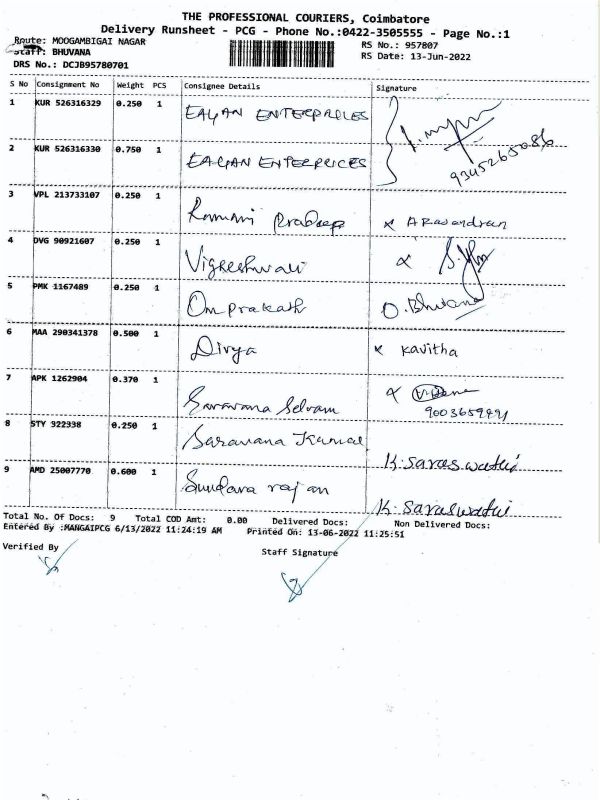 THE PROFESSIONAL COURIERS, Coimbatore
Delivery Runsheet - PCG - Phone No.:0422-3505555 - Page No.:1
Route: MOOGAMBIGAI NAGAR
RS No.: 957807
Staff: BHUVANA
RS Date: 13-Jun-2022
DRS No.: DCJB95780701
S No Consignment No Weight PCS Consignee Details Signature
1 KUR 526316329 0.250 1 EALYAN ENTERPRICES
2 KUR 526316330 0.750 1 EALYAN ENTERPRICES 9345265086
3 VPL 213733107 0.250 1 Rammi Pradeep x ARavandran
4 DVG 90921607 0.250 1 Vigneshwari x
5 PMK 1167489 0.250 1 Om prakash O.Bhuvana
6 MAA 290341378 0.500 1 Divya x Kavitha
7 APK 1262904 0.370 1 Saravana Selvam x
8 STY 322338 0.250 1 Saravana Kumar K. Saraswathi
9 AMD 25007770 0.600 1 Sundara rajan K. Saraswathi
Total No. Of Docs: 9 Total COD Amt: 0.00 Delivered Docs: Non Delivered Docs:
Entered By :MANGAIPCG 6/13/2022 11:24:19 AM Printed On: 13-06-2022 11:25:51
Verified By
Staff Signature